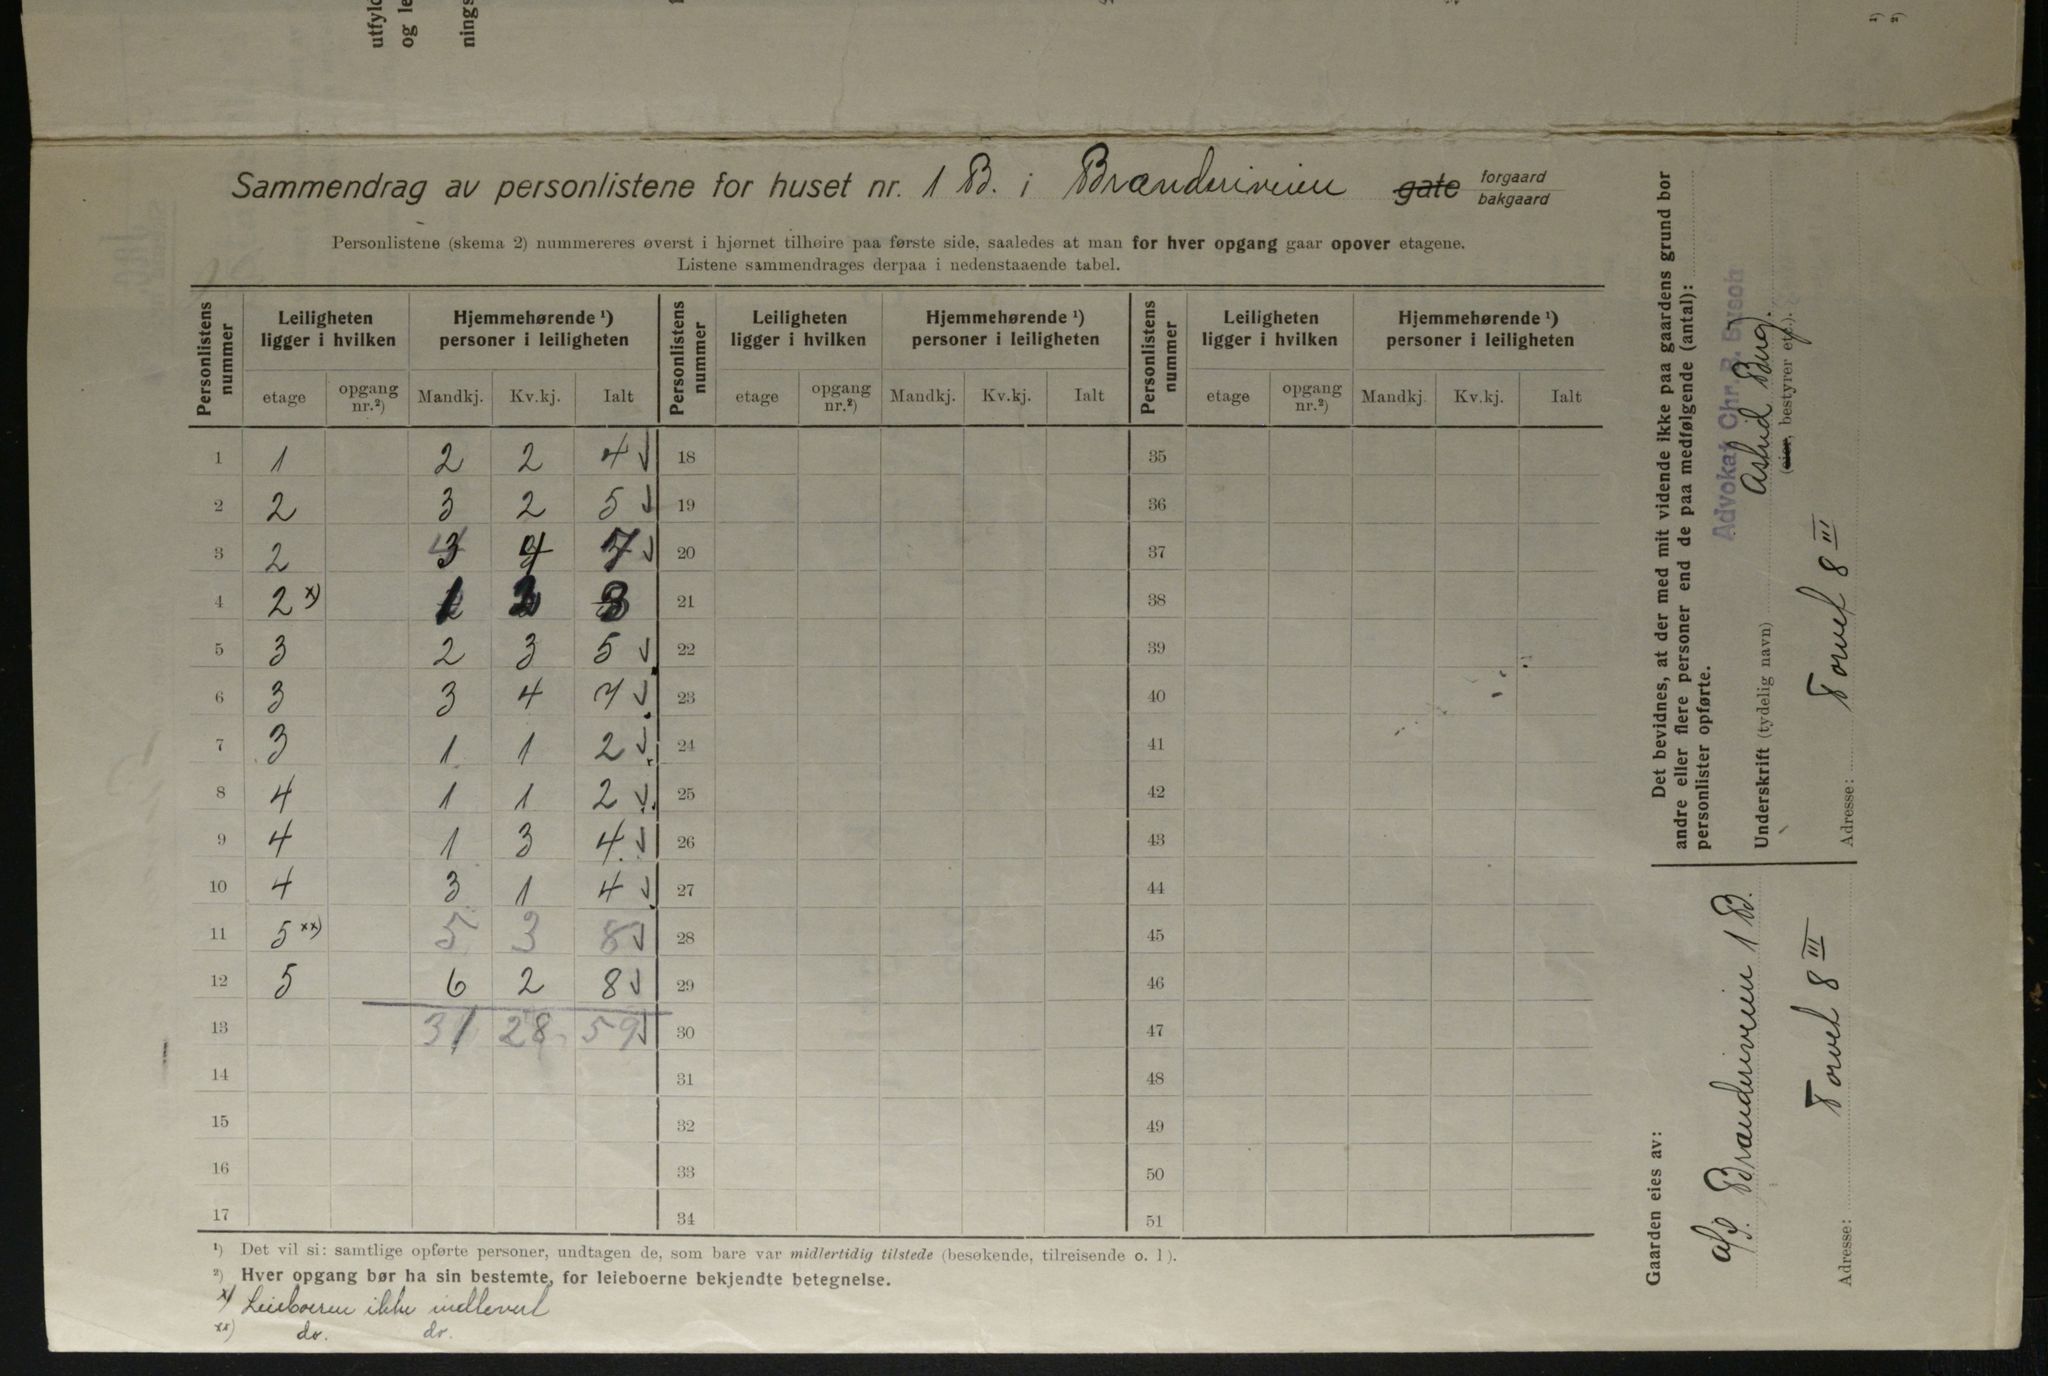 utfyld
og le
nings
Sammendrag av personlistene for huset nr. 1 B. i Brænderiveien gate forgaard bakgaard
Personlistene (skema 2) nummereres øverst i hjørnet tilhøire paa første side, saaledes at man for hver opgang gaar opover etagene.
Listene sammendrages derpaa i nedenstaaende tabel.
Personlistens nummer | Leiligheten ligger i hvilken | Hjemmehørende ¹) personer i leiligheten | Personlistens nummer | Leiligheten ligger i hvilken | Hjemmehørende ¹) personer i leiligheten | Personlistens nummer | Leiligheten ligger i hvilken | Hjemmehørende ¹) personer i leiligheten
etage | opgang nr.²) | Mandkj. | Kv.kj. | Ialt | etage | opgang nr.²) | Mandkj. | Kv.kj. | Ialt | etage | opgang nr.²) | Mandkj | Kv.kj. | Ialt
1 | 1 | 2 | 2 | 4 | 18 | 35
2 | 2 | 3 | 2 | 5 | 19 | 36
3 | 2 | 3 | 4 | 7 | 20 | 37
4 | 2 x) | 1 | 3 | 21 | 38
5 | 3 | 2 | 3 | 5 | 22 | 39
6 | 3 | 3 | 4 | 7 | 23 | 40
7 | 3 | 1 | 1 | 2 | 24 | 41
8 | 4 | 1 | 1 | 2 | 25 | 42
9 | 4 | 1 | 3 | 4 | 26 | 43
10 | 4 | 3 | 1 | 4 | 27 | 44
11 | 5 xx) | 5 | 3 | 8 | 28 | 45
12 | 5 | 6 | 2 | 8 | 29 | 46
13 | 31 | 28 | 59 | 30 | 47
14 | 31 | 48
15 | 32 | 49
16 | 33 | 50
17 | 34 | 51
¹) Det vil si: samtlige opførte personer, undtagen de, som bare var midlertidig tilstede (besøkende, tilreisende o. l).
²) Hver opgang bør ha sin bestemte, for leieboerne bekjendte betegnelse.
x) Leieboeren ikke indlevert
xx) do. do.
Det bevidnes, at der med mit vidende ikke paa gaardens grund bor
andre eller flere personer end de paa medfølgende (antal):
personlister opførte.
Advokat Chr. B. Bysoh
Underskrift (tydelig navn) Astrid Burg.
(eier, bestyrer etc.).
Adresse: Torvet 8 III
Gaarden eies av:
A/S. Brænderiveien 1 B.
Adresse: Torvet 8 III
¹)
²)